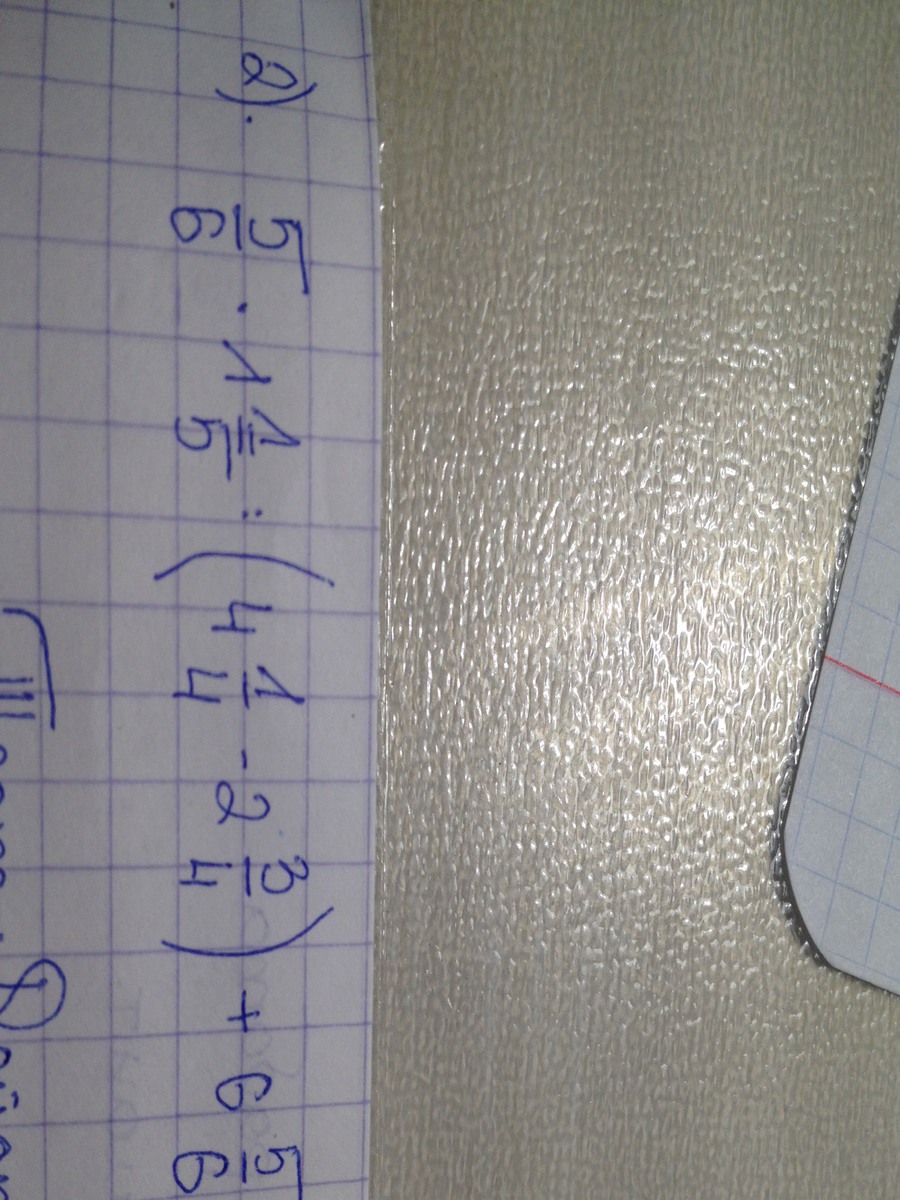 2). 5/6 · 1 1/5 : (4 1/4 - 2 3/4) + 6 5/6